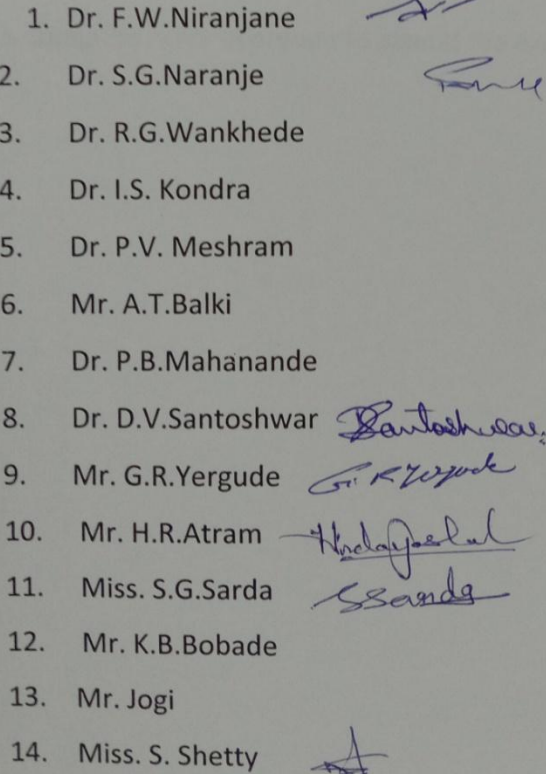 1. Dr. F.W.Niranjane
2. Dr. S.G.Naranje
3. Dr. R.G.Wankhede
4. Dr. I.S. Kondra
5. Dr. P.V. Meshram
6. Mr. A.T.Balki
7. Dr. P.B.Mahanande
8. Dr. D.V.Santoshwar Santoshwar
9. Mr. G.R.Yergude G.R.Yergude
10. Mr. H.R.Atram
11. Miss. S.G.Sarda SSarda
12. Mr. K.B.Bobade
13. Mr. Jogi
14. Miss. S. Shetty